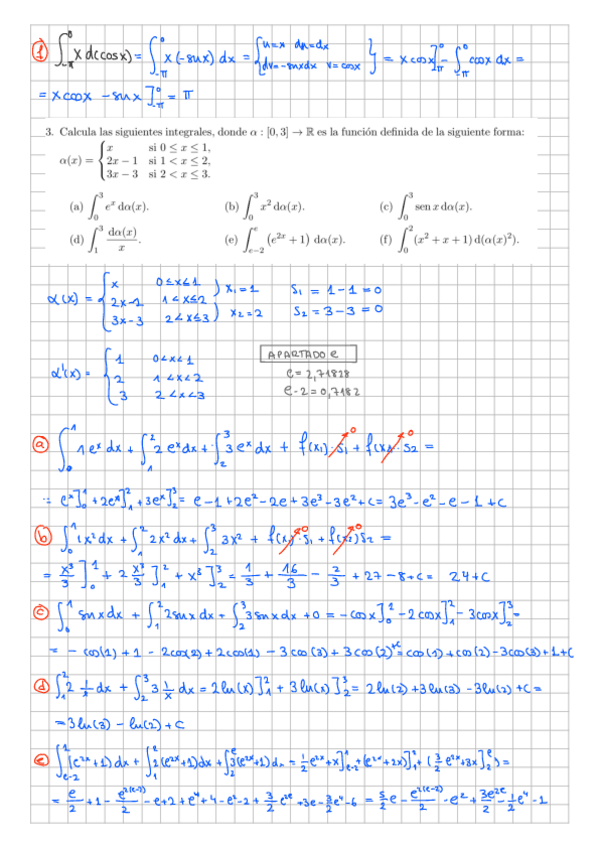 f) ∫_{-π}^{0} x d(cos x) = ∫_{-π}^{0} x(-sin x) dx = { u=x du=dx dv=-sinxdx v=cosx } = x cosx]_{-π}^{0} - ∫_{-π}^{0} cosx dx =
= x cosx - sinx]_{-π}^{0} = π
3. Calcula las siguientes integrales, donde α : [0, 3] → ℝ es la función definida de la siguiente forma:
α(x) = { x si 0 ≤ x ≤ 1,
2x − 1 si 1 < x ≤ 2,
3x − 3 si 2 < x ≤ 3.
(a) ∫_0^3 e^x dα(x). (b) ∫_0^3 x^2 dα(x). (c) ∫_0^3 sen x dα(x).
(d) ∫_1^3 dα(x)/x. (e) ∫_{e−2}^{e} (e^{2x} + 1) dα(x). (f) ∫_0^2 (x^2 + x + 1) d(α(x)^2).
α(x) = { x 0≤x≤1 ) x₁=1 S₁ = 1-1 = 0
2x-1 1<x≤2
3x-3 2<x≤3 ) x₂=2 S₂ = 3-3 = 0
APARTADO e
α'(x) = { 1 0<x<1
2 1<x<2
3 2<x<3
e = 2,71828
e-2 = 0,7182
a) ∫_0^1 1e^x dx + ∫_1^2 2e^x dx + ∫_2^3 3e^x dx + f(x₁)·S₁ + f(x₂)·S₂ =
= e^x]_0^1 + 2e^x]_1^2 + 3e^x]_2^3 = e-1+2e²-2e+3e³-3e²+C = 3e³-e²-e-1+C
b) ∫_0^1 1x² dx + ∫_1^2 2x² dx + ∫_2^3 3x² + f(x₁)·S₁ + f(x₂)S₂ =
= x³/3]_0^1 + 2 x³/3]_1^2 + x³]_2^3 = 1/3 + 16/3 - 2/3 + 27-8+C = 24+C
c) ∫_0^1 sinxdx + ∫_1^2 2sinxdx + ∫_2^3 3sinxdx +0 = -cosx]_0^1 -2cosx]_1^2 -3cosx]_2^3 =
= -cos(1)+1 -2cos(2)+2cos(1) -3cos(3)+3cos(2)+C = cos(1)+cos(2)-3cos(3)+1+C
d) ∫_1^2 2 1/x dx + ∫_2^3 3 1/x dx = 2ln(x)]_1^2 + 3ln(x)]_2^3 = 2ln(2)+3ln(3)-3ln(2)+C =
=3ln(3)-ln(2)+C
e) ∫_{e-2}^1 (e^{2x}+1)dx + ∫_1^2 2(e^{2x}+1)dx + ∫_2^e 3(e^{2x}+1)dx = 1/2 e^{2x}+x]_{e-2}^1 + (e^{2x}+2x)]_1^2 + (3/2 e^{2x}+3x]_2^e) =